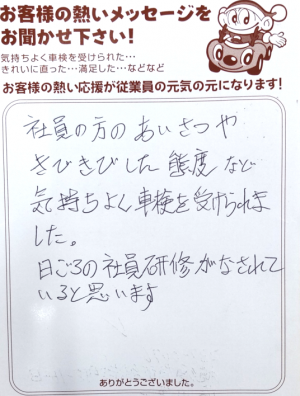 お客様の熱いメッセージを
お聞かせ下さい!
気持ちよく車検を受けられた…
きれいに直った…満足した…などなど
お客様の熱い応援が従業員の元気の元になります!
社員の方の あいさつ や
きびきびした 態度 など
気持ちよく 車検を受けられま
した。
日ごろの社員研修がなされて
いると思います
ありがとうございました。